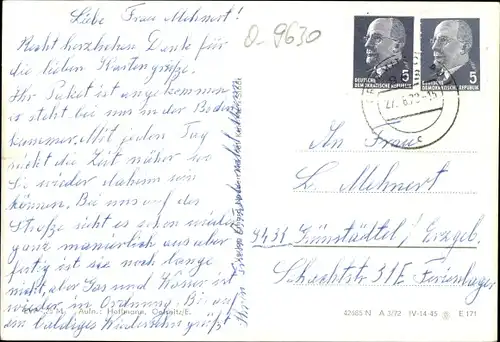 Liebe Frau Mehnert!
Recht herzlichen Dank für
die lieben Kartengrüße.
Ihr Paket ist angekommen
es steht bei uns in der Boden
kammer. Mit jedem Tag
rückt die Zeit näher wo
Sie wieder daheim sein
können. Bei uns auf der
Straße sieht es schon wieder
ganz manierlich aus aber
fertig ist sie noch lange
nicht, aber Gas und Wasser ist
wieder in Ordnung. Bis auf
ein baldiges Wiedersehn grüßt
Aufn.: Hoffmann, Oelsnitz/E.
O-9630
DEUTSCHE
DEMOKRATISCHE REPUBLIK
5
DEUTSCHE
DEMOKRATISCHE REPUBLIK
5
27.6.72-15
An Frau
L. Mehnert
9431 Rittersgrün/Erzgeb.
Schachtstr. 31E Ferienlager
42685 N A 3/72 IV-14-45 E 171